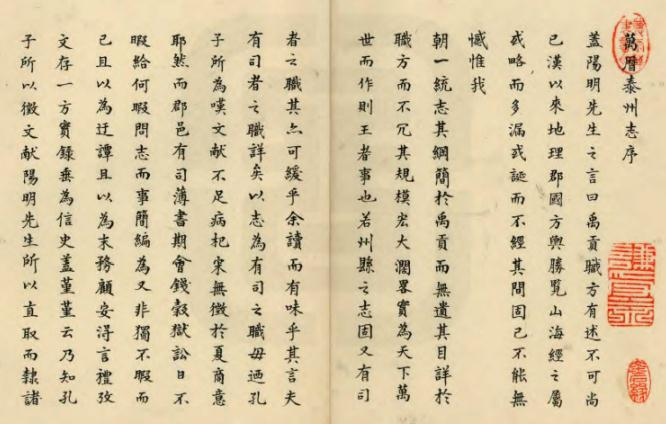 萬曆泰州志序
蓋陽明先生之言曰禹貢職方有述不可尚
已漢以來地理郡國方輿勝覽山海經之屬
或略而多漏或誕而不經其間固已不能無
憾惟我
朝一統志其綱簡於禹貢而無遺其目詳於
職方而不冗其規模宏大濶畧實為天下萬
世而作則王者事也若州縣之志固又有司
者之職其亦可緩乎余讀而有味乎其言夫
有司者之職詳矣以志為有司之職毋迺孔
子所為嘆文献不足病杞宋無徵於夏商意
耶然而郡邑有司薄書期會錢穀獄訟日不
暇給何暇問志而事簡編為又非獨不暇而
已且以為迂譚且以為末務顧安得言禮攷
文存一方實錄垂為信史蓋堇堇云乃知孔
子所以徵文献陽明先生所以直取而隸諸